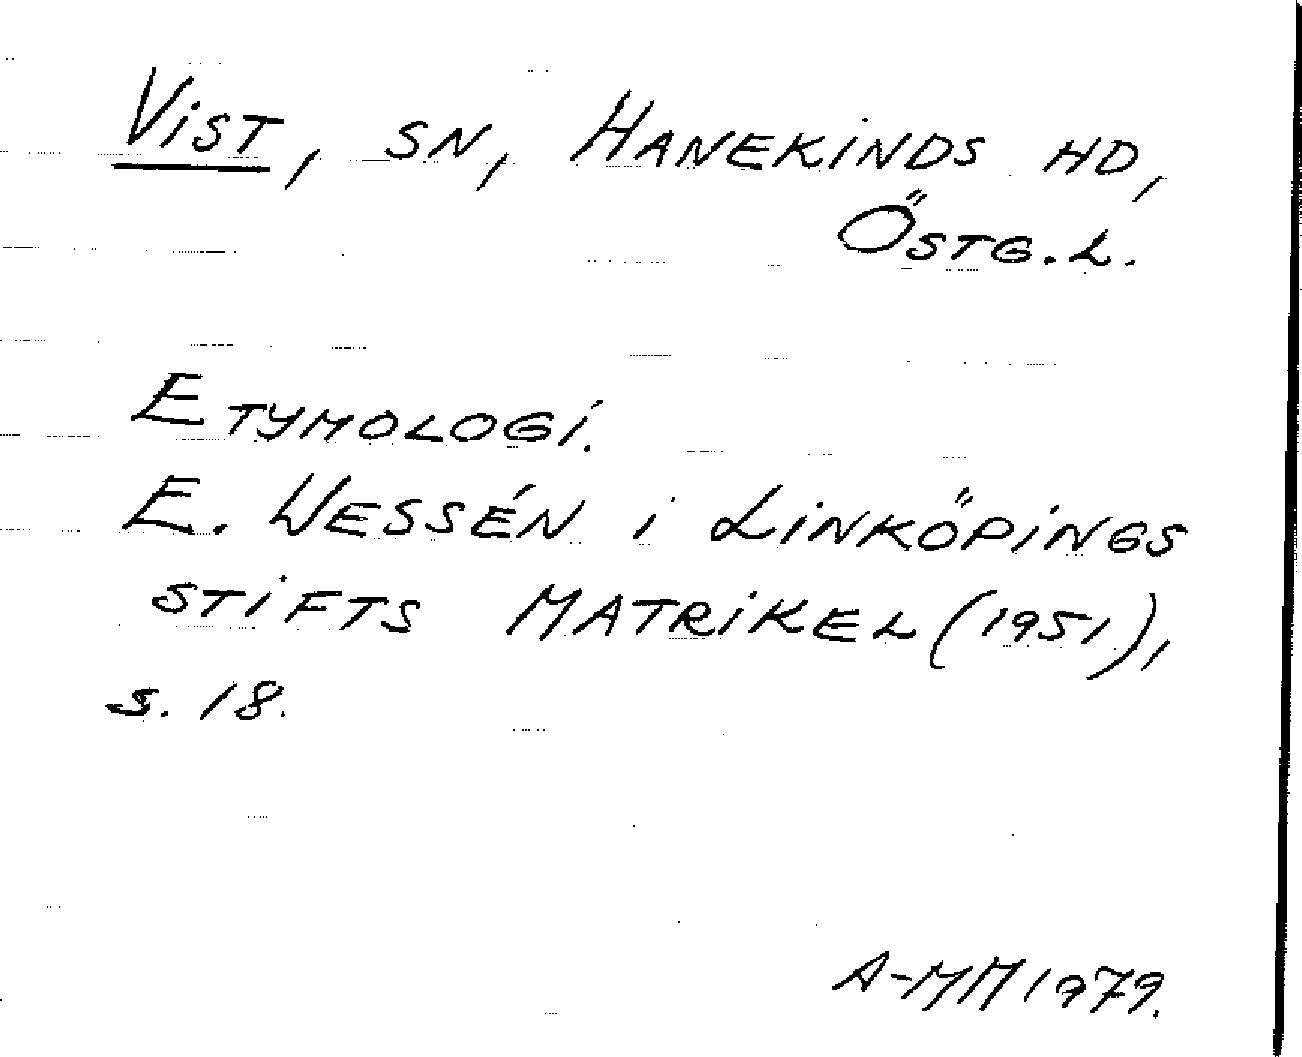 Vist, sn, Hanekinds hd,
Östg.l.
Etymologi.
E. Wessén i Linköpings
stifts matrikel (1951),
s. 18.
A-MM 1979.